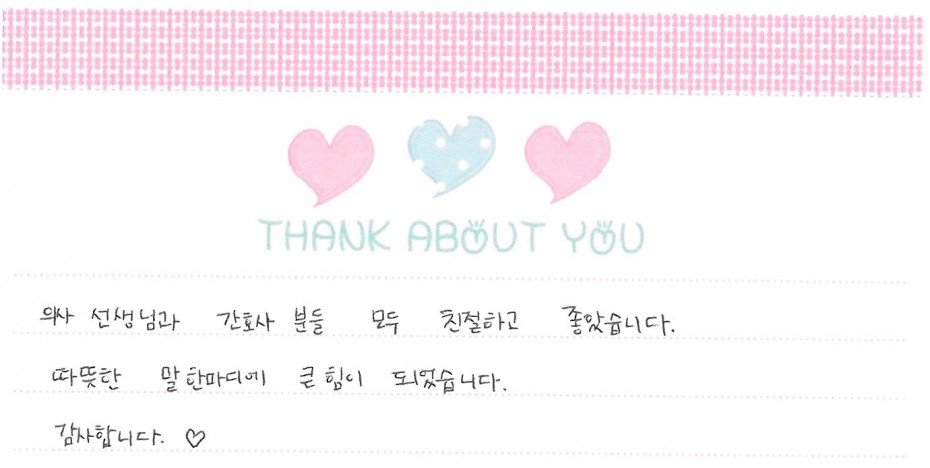 THANK ABOUT YOU
의사 선생님과 간호사 분들 모두 친절하고 좋았습니다.
따뜻한 말 한마디에 큰 힘이 되었습니다.
감사합니다. ♡